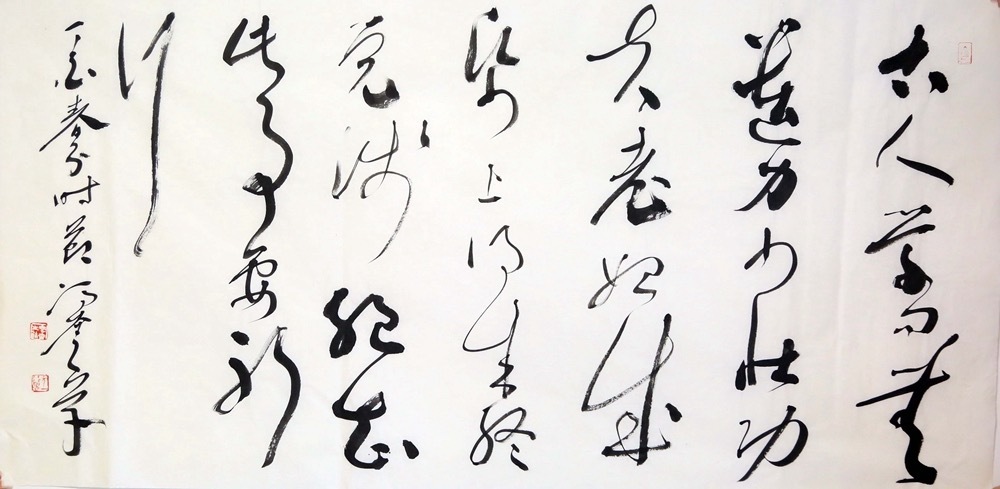 古人学问无
遗力少壮功
夫老始成
纸上得来终
觉浅绝知
此事要躬
行
丁酉春分时节冯